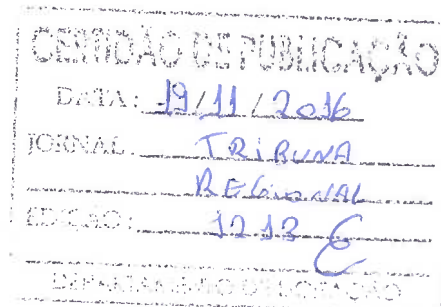 CERTIDÃO DE PUBLICAÇÃO
DATA: 19/11/2016
JORNAL: TRIBUNA
REGIONAL
EDIÇÃO: 1213
DEPARTAMENTO DE LICITAÇÃO